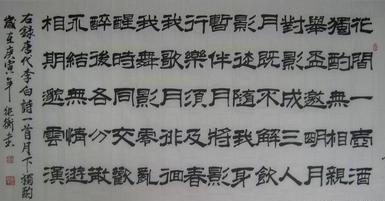 花間一壺酒
獨酌無相親
舉盃邀明月
對影成三人
月既不解飲
影徒隨我身
暫伴月將影
行樂須及春
我歌月徘徊
我舞影零亂
醒時同交歡
醉後各分散
永結無情遊
相期邈雲漢
右錄唐代李白詩一首月下獨酌
歲在庚寅年